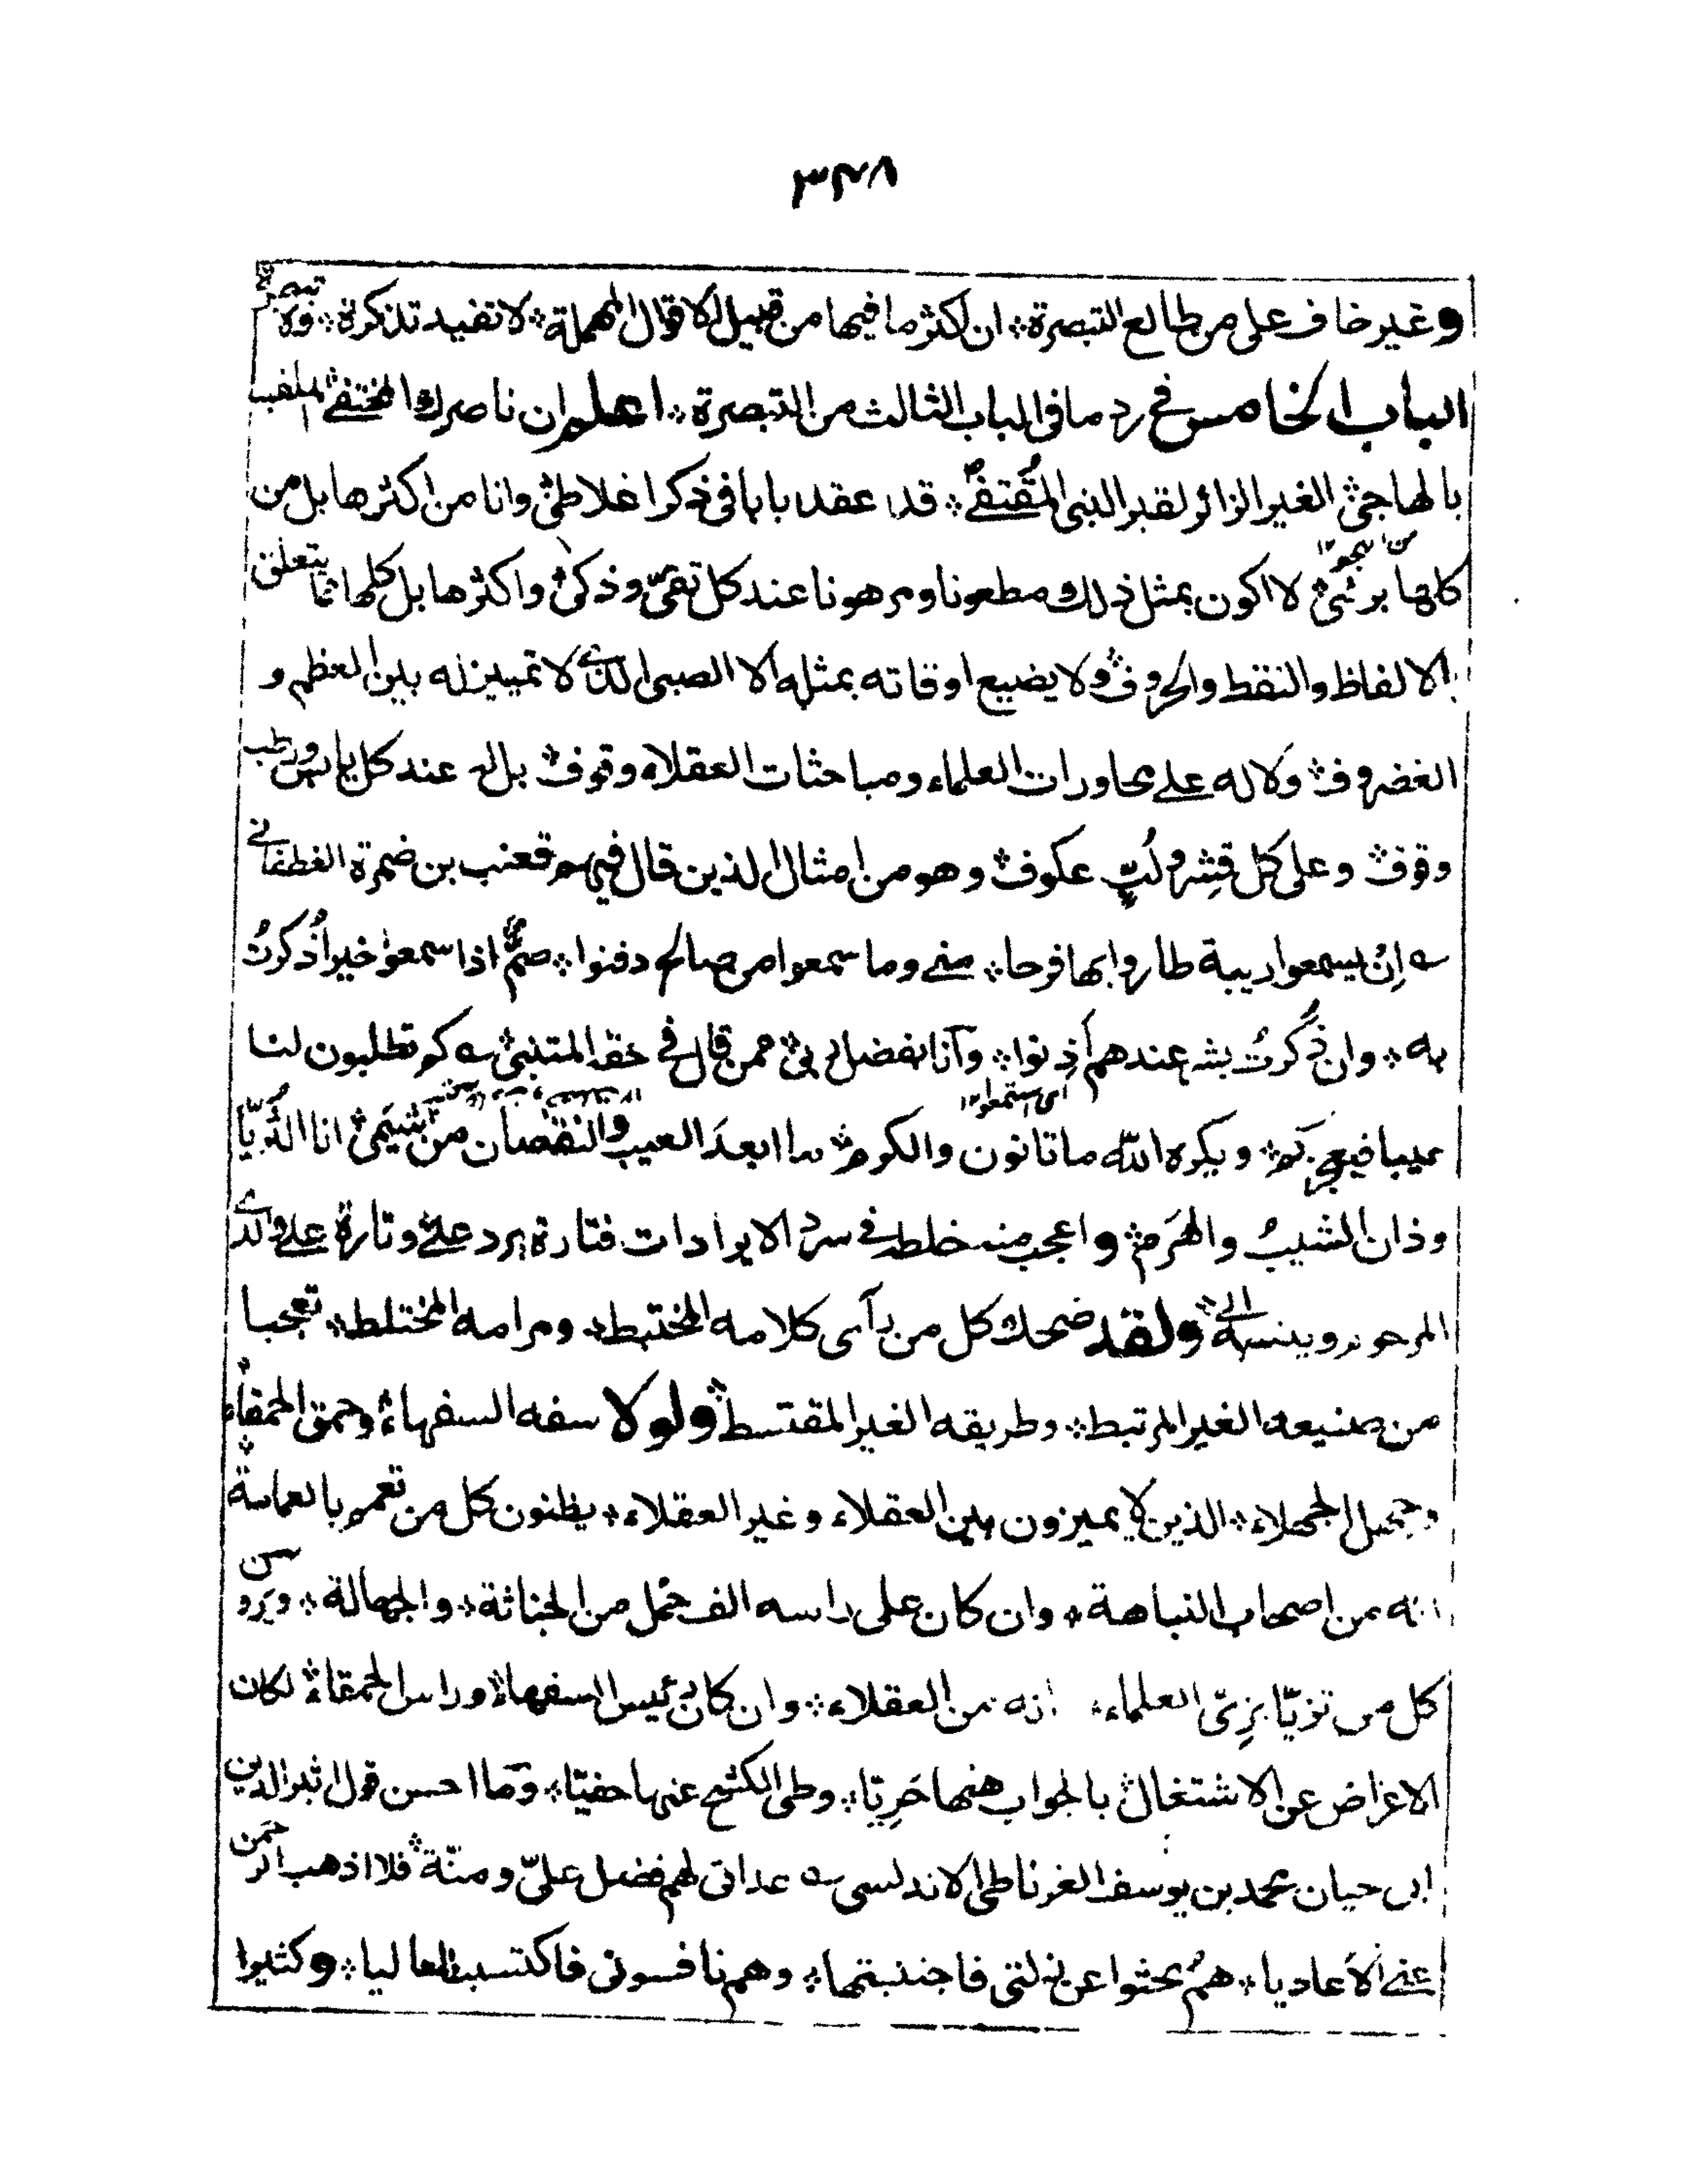 ٣٤٨
وغير خاف على من طالع التبصرة ان اكثر ما فيها من قبيل الاقوال المهملة لا تفيد تذكرة ولا تبصرة
الباب الخامس في رد ما في الباب الثالث من التبصرة اعلم ان ناصرك المختفي الملقب
بالهاجي الغير الزائر لقبر النبي المقتفى قد عقد بابا في ذكر اغلاطي وانا من اكثرها بل من
كلها برئ لا اكون بمثل ذلك مطعونا ومرهونا عند كل تقي وذكي واكثرها بل كلها مما يتعلق
بالالفاظ والنقط والحروف ولا يضيع اوقاته بمثله الا الصبي الذي لا تمييز له بين العظم و
الغضروف ولا له على محاورات العلماء ومباحثات العقلاء وقوف بل له عند كل يابس ورطب
وقوف وعلى كل قشر ولب عكوف وهو من امثال الذين قال فيهم قعنب بن ضمرة الغطفاني
ان يسمعوا ريبة طاروا بها فرحا مني وما سمعوا من صالح دفنوا صم اذا سمعوا خيرا ذكرت
به وان ذكرت بشر عندهم اذنوا وانا بفضل ربي ممن قال في حقه المتنبي كم تطلبون لنا
اي استمعوا
عيبا فيعجزكم ويكره الله ما تاتون والكرم ما ابعد العيب والنقصان من شيمي انا الثريا
وذان الشيب والهرم واعجب منه خلطه في سرد الايرادات فتارة يرد علي وتارة على والدي
المرحوم وينسبه الي ولقد ضحك كل من رأى كلامه المختبط ومرامه المختلط تعجبا
من صنيعه الغير المرتبط وطريقه الغير المقتسط ولولا سفه السفهاء وحمق الحمقاء
وجهل الجهلاء الذين لا يميزون بين العقلاء وغير العقلاء يظنون كل من تعمم بالعمامة
انه من اصحاب النباهة وان كان على راسه الف حمل من الخباثة والجهالة ويرون
كل من تزيا بزي العلماء انه من العقلاء وان كان رئيس السفهاء وراس الحمقاء لكان
الاعراض عن الاشتغال بالجواب عنها حريا وطي الكشح عنها حفيا وما احسن قول اثير الدين
ابي حيان محمد بن يوسف الغرناطي الاندلسي عداتي لهم فضل علي ومنة فلا اذهب الرحمن
عني الاعاديا هم بحثوا عن زلتي فاجتنبتها وهم نافسوني فاكتسبت المعاليا وكثيرا